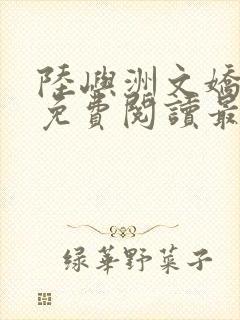 陸嶼洲文嬌
免費閱讀最
绿華野菜子